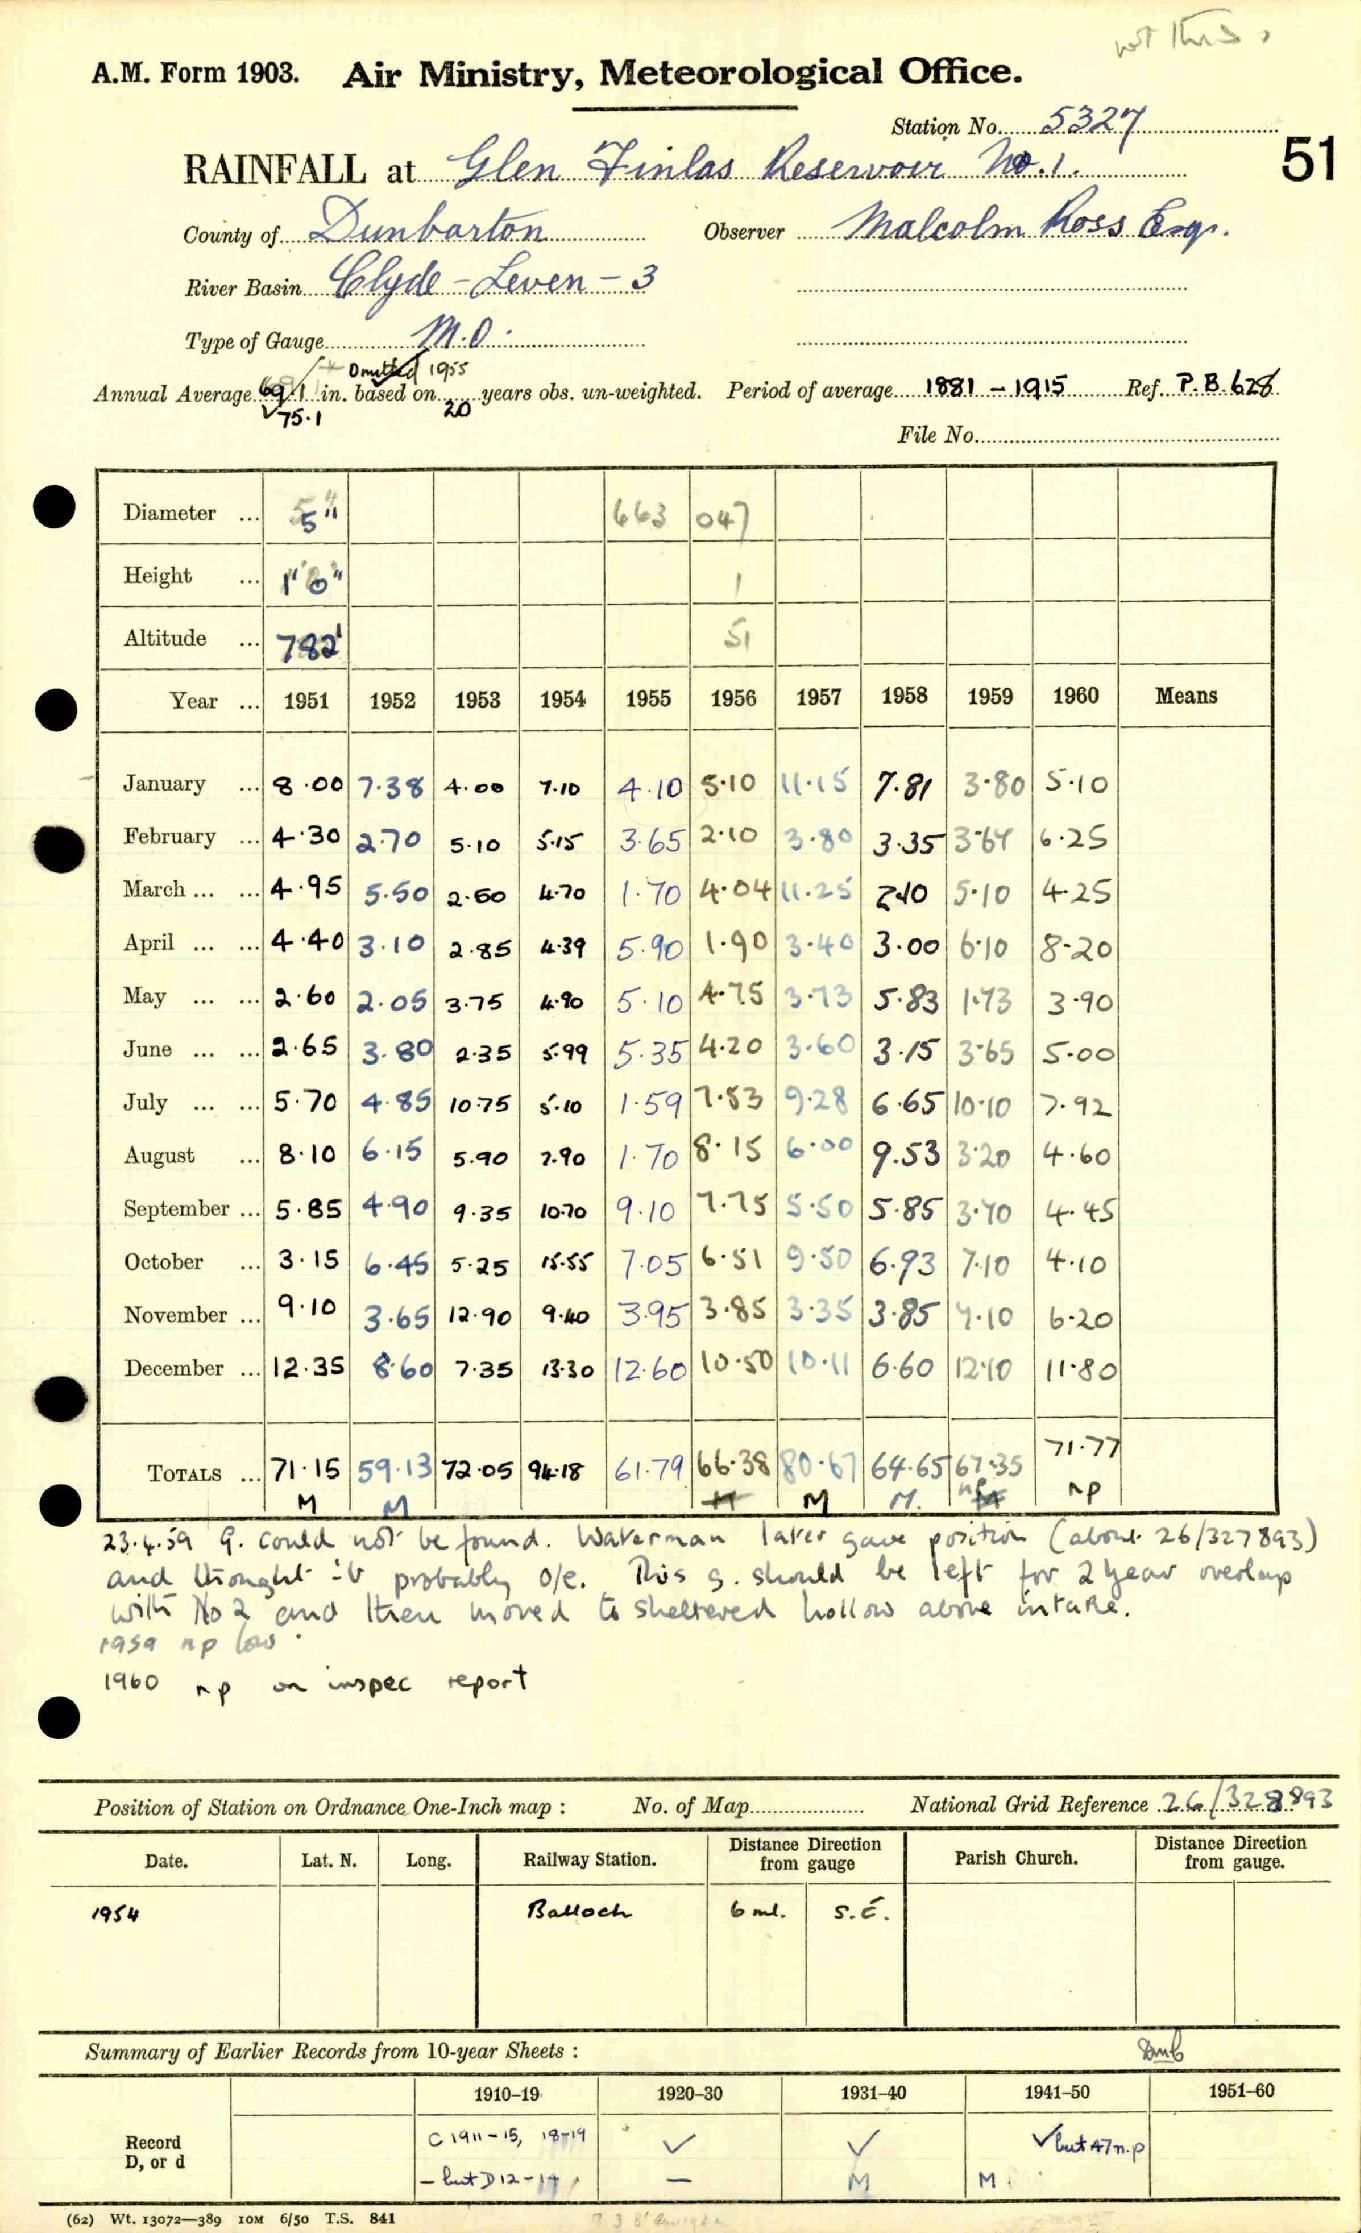 not this
A.M. Form 1903. Air Ministry, Meteorological Office.
Station No. 5327
51
RAINFALL at Glen Finlas Reservoir No. 1.
County of Dunbarton Observer Malcolm Ross Esqr.
River Basin Clyde - Leven - 3
Type of Gauge M.O.
Omitted 1955
Annual Average 69.1 in. based on 20 years obs. un-weighted. Period of average 1881 - 1915 Ref. P.B. 628
75.1
File No.
Diameter ... 5" 663 047
Height ... 1' 0" 1
Altitude ... 782' 51
Year ... 1951 1952 1953 1954 1955 1956 1957 1958 1959 1960 Means
January ... 8.00 7.38 4.00 7.10 4.10 5.10 11.15 7.81 3.80 5.10
February ... 4.30 2.70 5.10 5.15 3.65 2.10 3.80 3.35 3.67 6.25
March ... ... 4.95 5.50 2.50 4.70 1.70 4.04 11.25 2.10 5.10 4.25
April ... ... 4.40 3.10 2.85 4.39 5.90 1.90 3.40 3.00 6.10 8.20
May ... ... 2.60 2.05 3.75 4.90 5.10 4.75 3.73 5.83 1.73 3.90
June ... ... 2.65 3.80 2.35 5.99 5.35 4.20 3.60 3.15 3.65 5.00
July ... ... 5.70 4.85 10.75 5.10 1.59 7.53 9.28 6.65 10.10 7.92
August ... 8.10 6.15 5.90 7.90 1.70 8.15 6.00 9.53 3.20 4.60
September ... 5.85 4.90 9.35 10.70 9.10 7.75 5.50 5.85 3.70 4.45
October ... 3.15 6.45 5.25 15.55 7.05 6.51 9.50 6.93 7.10 4.10
November ... 9.10 3.65 12.90 9.40 3.95 3.85 3.35 3.85 7.10 6.20
December ... 12.35 8.60 7.35 13.30 12.60 10.50 10.11 6.60 12.10 11.80
TOTALS ... 71.15 59.13 72.05 94.18 61.79 66.38 80.67 64.65 67.35 71.77
M M M M M. np np
23.4.59 G. could not be found. Waterman later gave position (about 26/327893)
and thought it probably o/e. This g. should be left for 2 year overlap
with No 2 and then moved to sheltered hollow above intake.
1959 np low.
1960 np on inspec report
Position of Station on Ordnance One-Inch map : No. of Map National Grid Reference 26/328893
Date. Lat. N. Long. Railway Station. Distance from gauge Direction Parish Church. Distance from gauge. Direction
1954 Balloch 6 ml. S.E.
Summary of Earlier Records from 10-year Sheets : Dmb
1910–19 1920–30 1931–40 1941–50 1951–60
Record C 1911-15, 18-19 ✓ ✓ ✓ but 47 n.p
D, or d - but D 12-14 — M M
(62) Wt. 13072—389 10M 6/50 T.S. 841